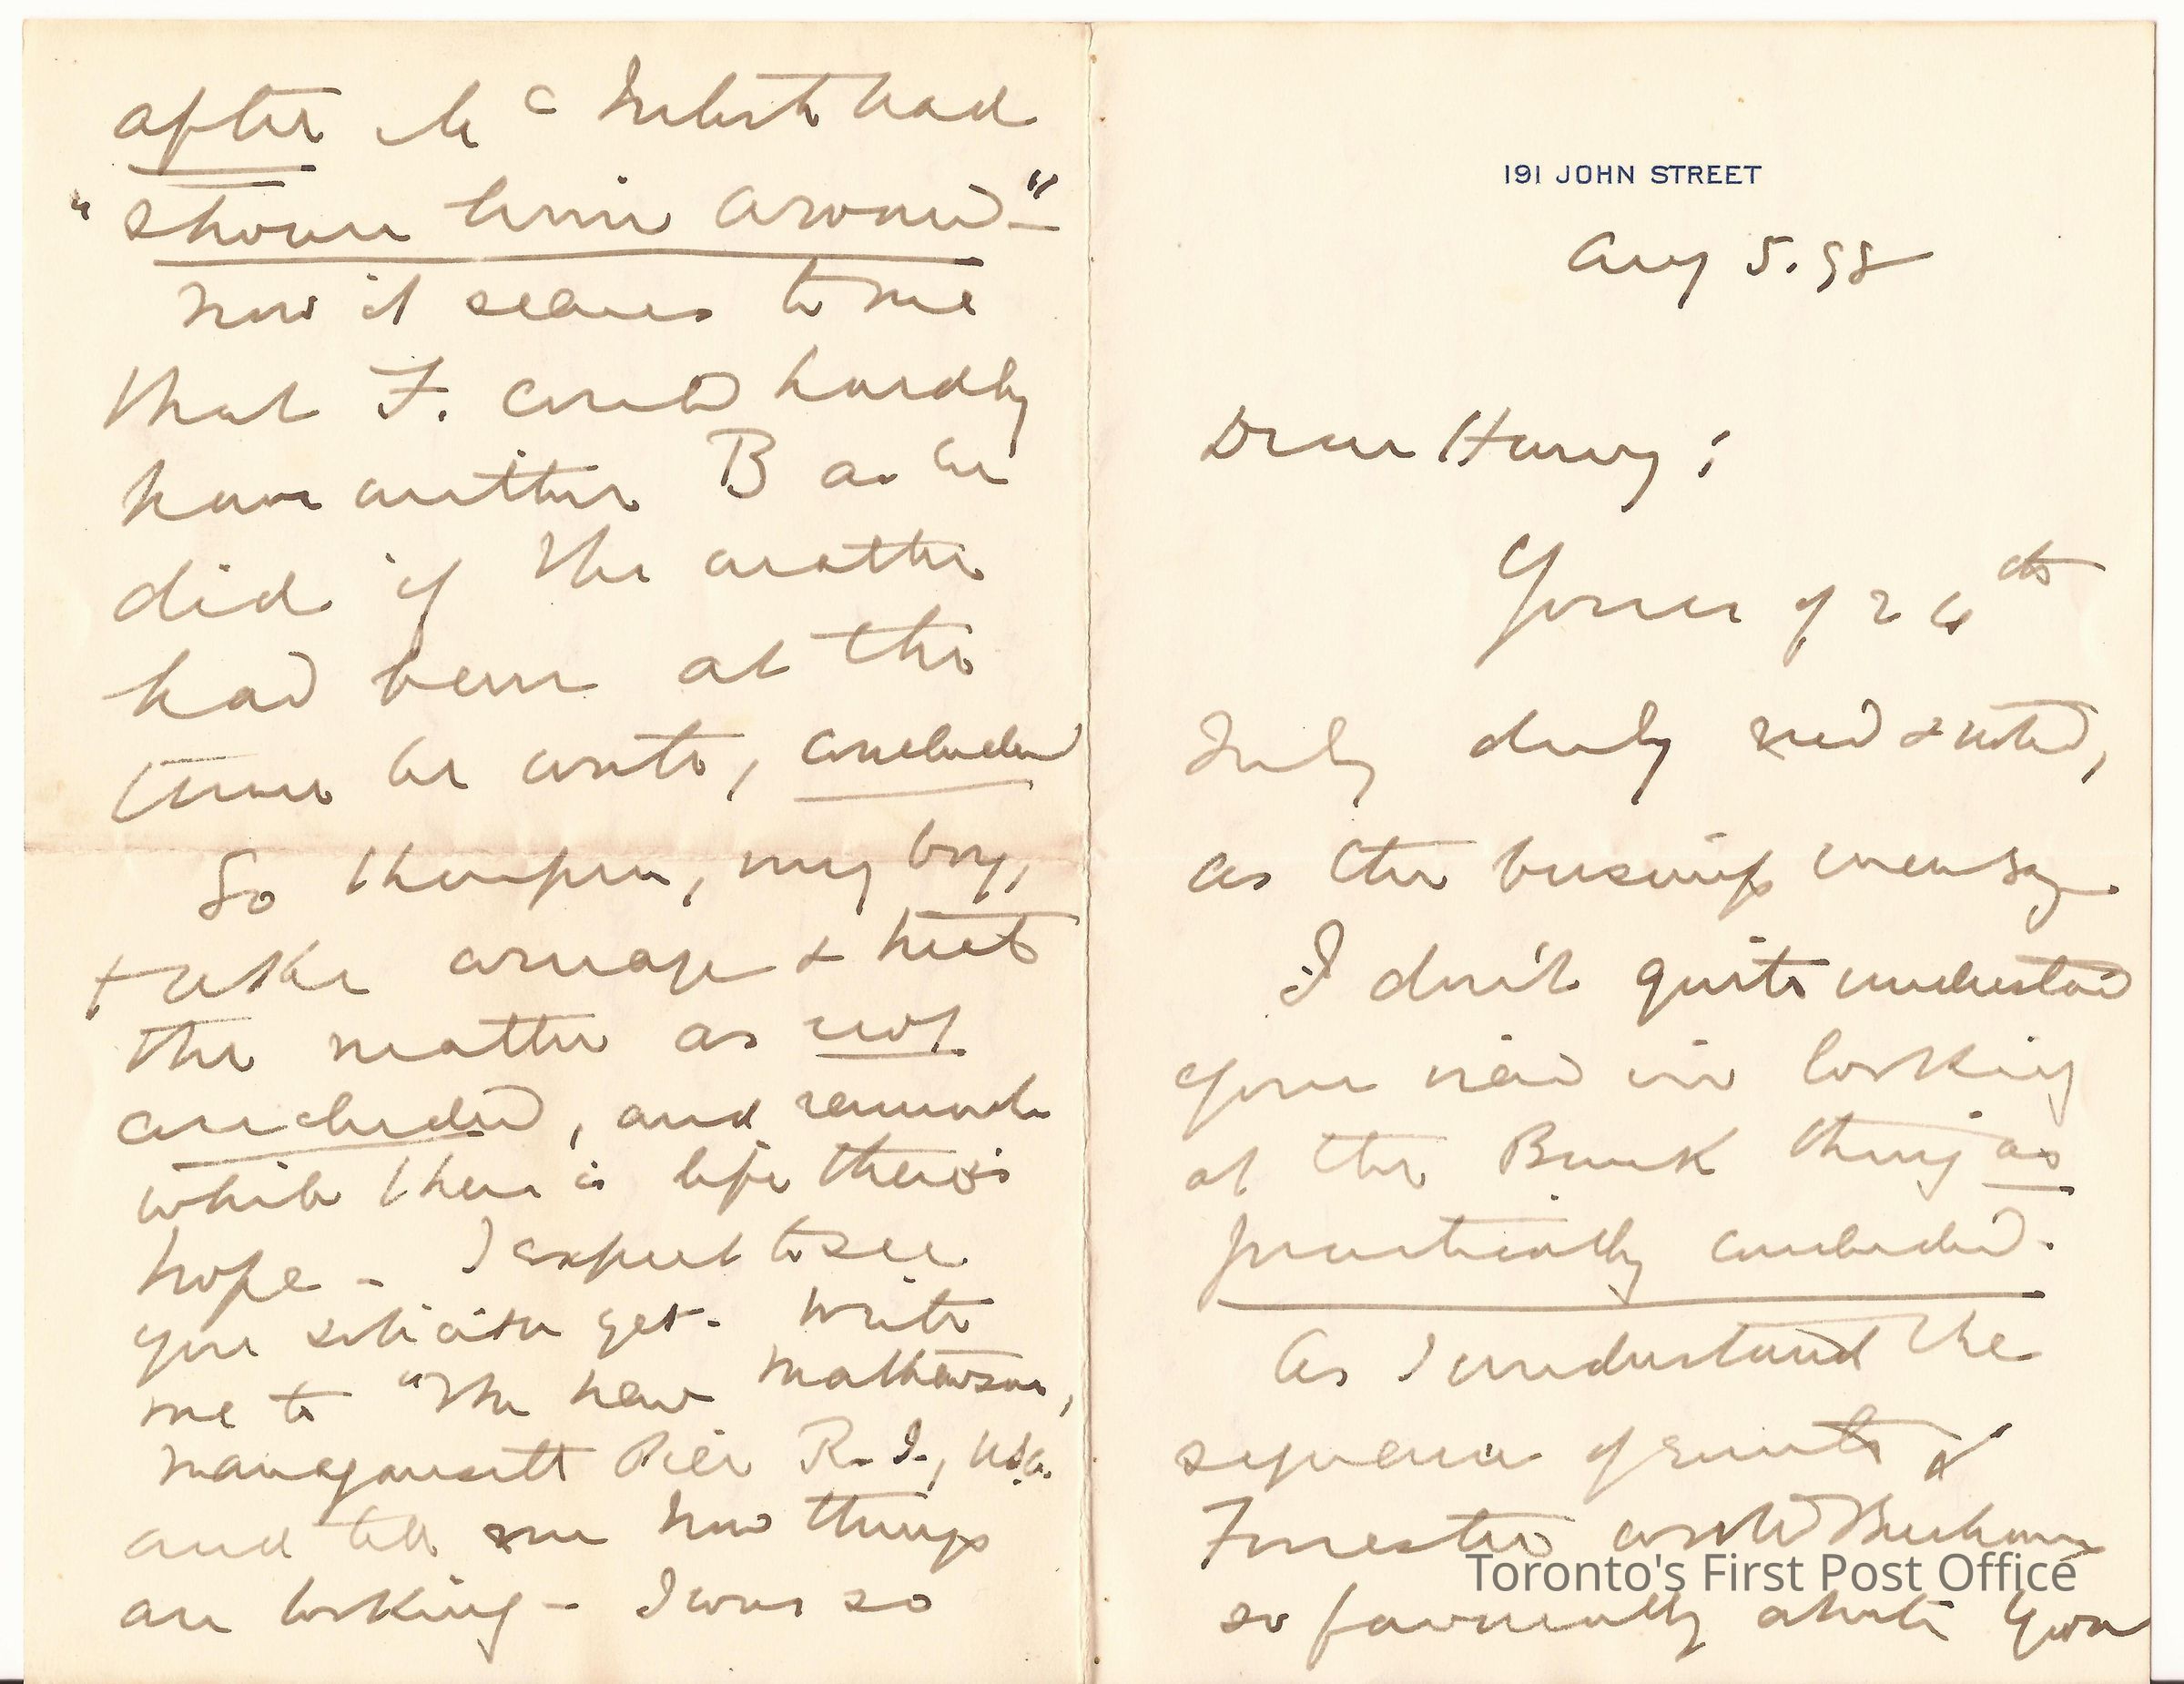 191 JOHN STREET
Aug 5. 98
Dear Harvey;
Yours of 26th
July duly rec'd & noted,
as the business men say.
I don't quite understand
your view in looking
at the Bank thing as
practically concluded.
As I understand the
sequence of events
Forrester wrote Buchanan
so favourably about you
Toronto's First Post Office
after Mc had
"shown him around" –
Now it seems to me
that F. could hardly
have written B as he
did if the matter
had been at the
time he wrote, concluded
So therefore, my boy,
take & treat
the matter as not
concluded, and remember
while there is life there is
hope – I expect to see
you solicitor yet. Write
me to "The New Mathewson,
Narragansett Pier R.I., USA.
and tell me how things
are looking – I was so